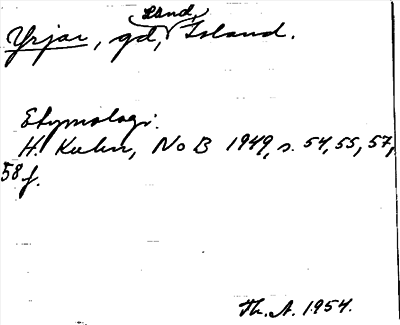 Yrjar, gd, Land, Island.
Etymologi:
H. Kuhn, NoB 1949, s. 54, 55, 57,
58 f.
Th. A. 1954.